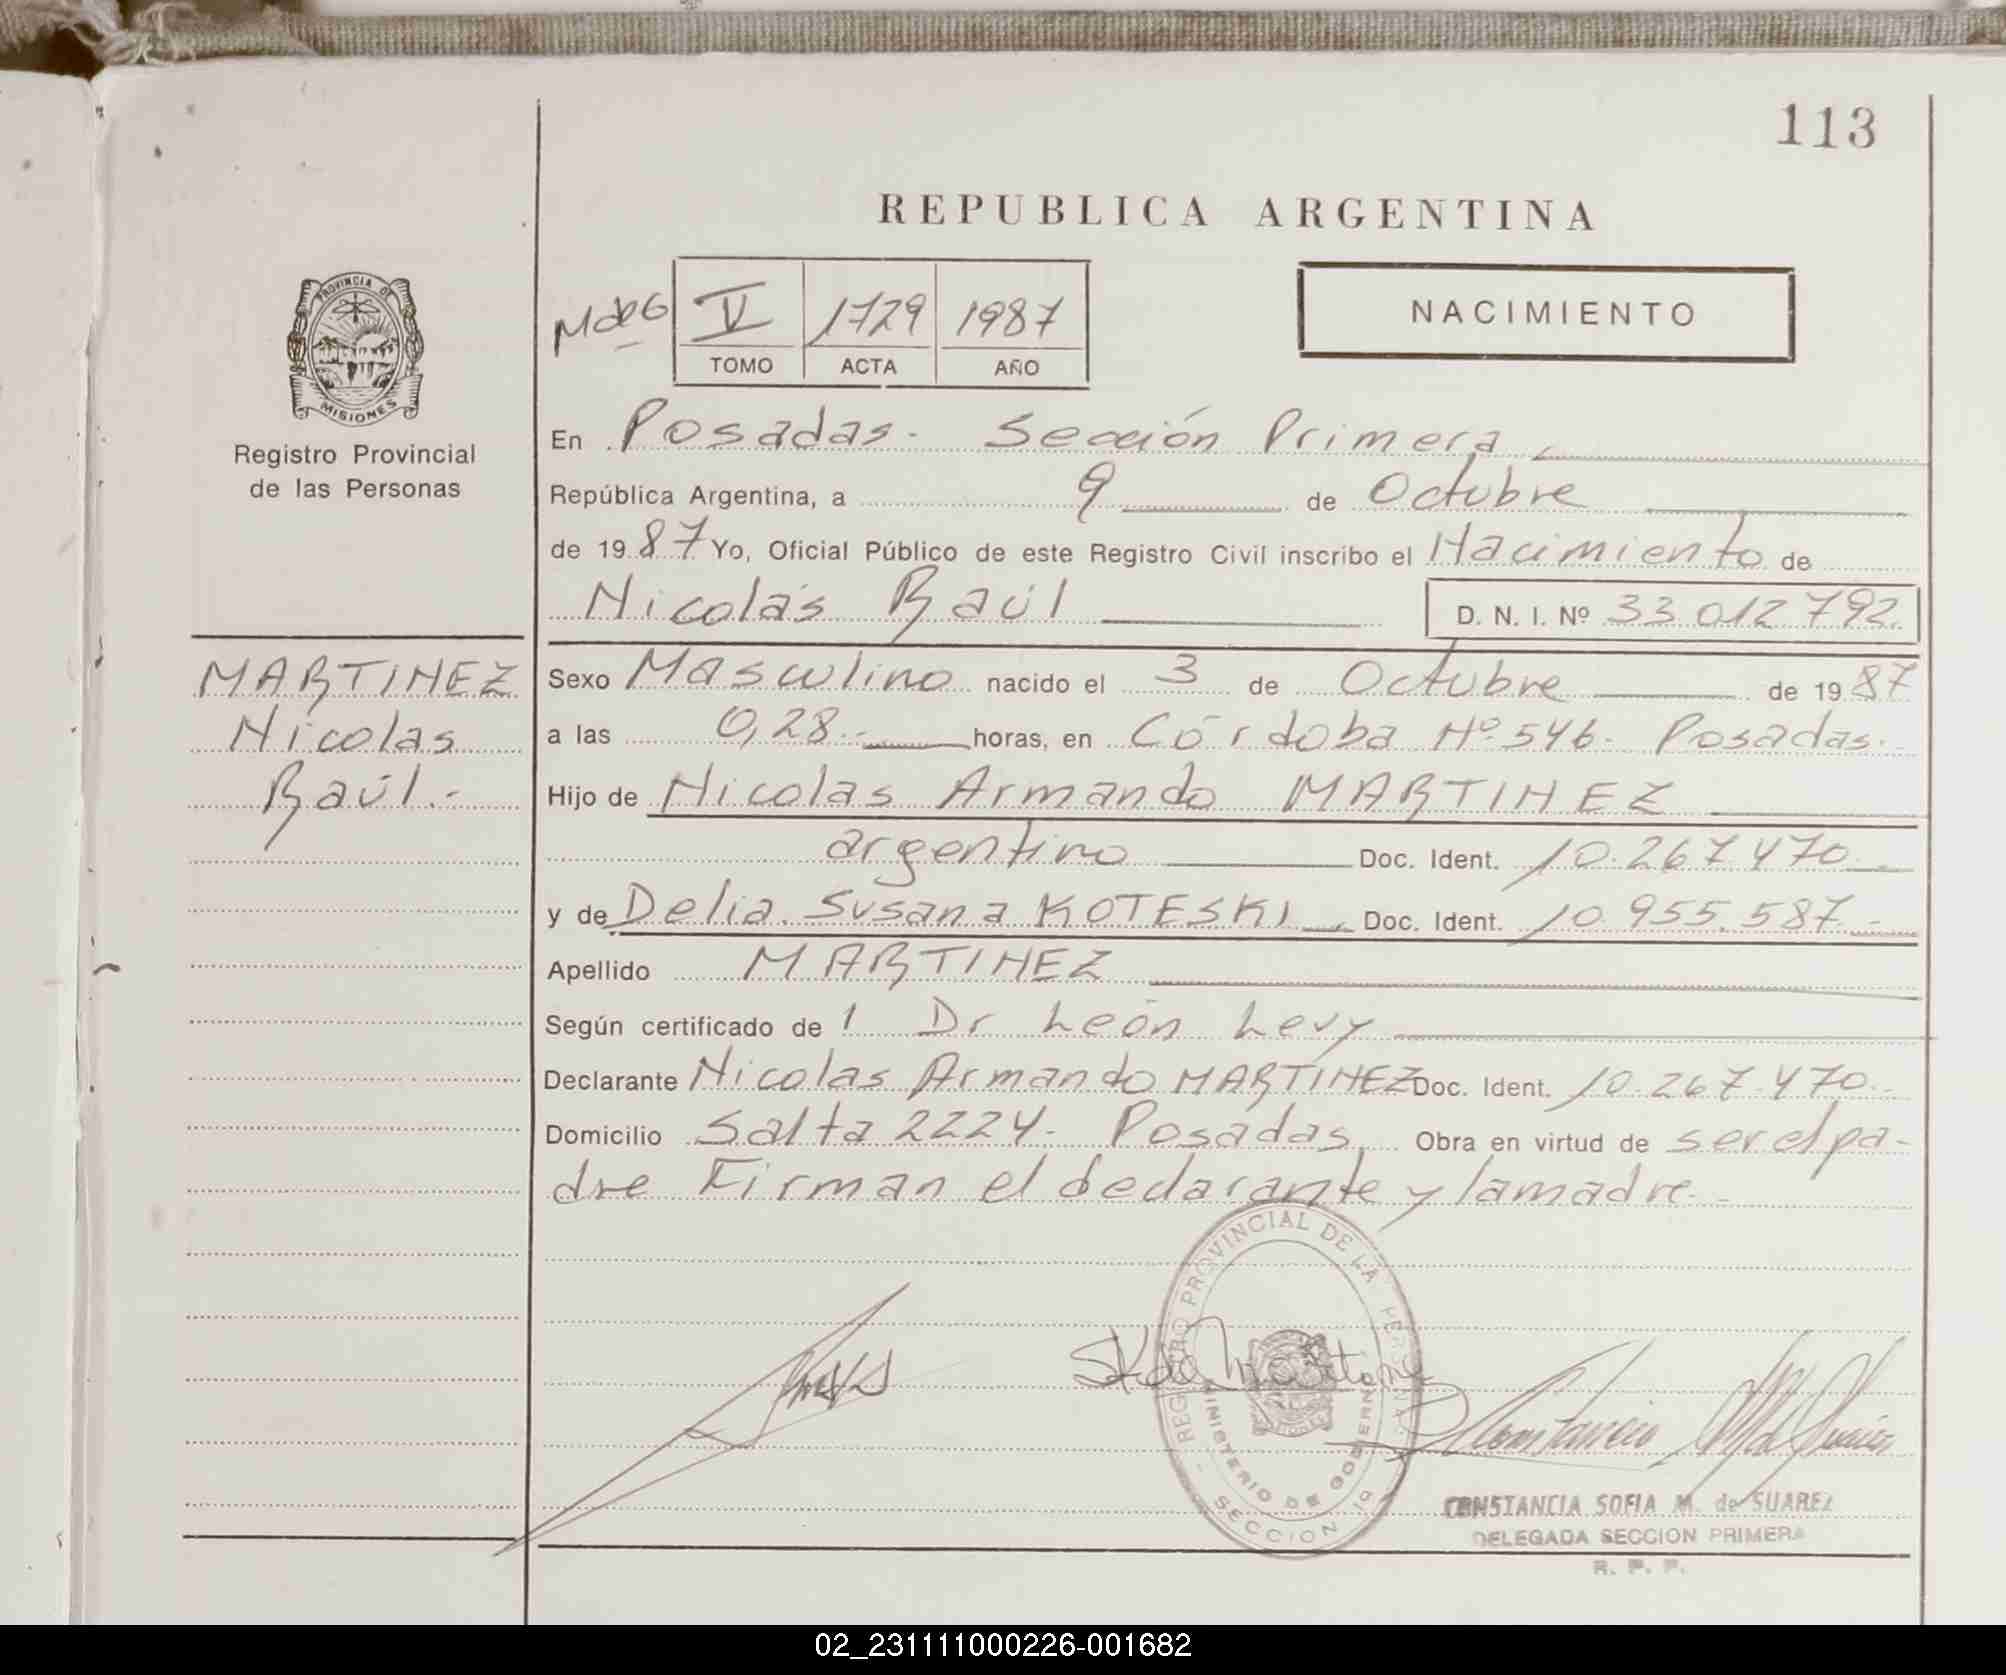 113
REPUBLICA ARGENTINA
PROVINCIA DE
MISIONES
Registro Provincial
de las Personas
V 1729 1987
TOMO ACTA AÑO
NACIMIENTO
En Posadas. Sección Primera
República Argentina, a 9 de Octubre
de 1987 Yo, Oficial Público de este Registro Civil inscribo el Nacimiento de
Nicolás Raúl D. N. I. Nº 33 012 792.
MARTINEZ
Nicolas
Raúl.-
Sexo Masculino nacido el 3 de Octubre de 1987
a las 0,28.- horas, en Córdoba Nº 546. Posadas.
Hijo de Nicolas Armando MARTINEZ
argentino Doc. Ident. 10.267.470
y de Delia Susana KOTESKI Doc. Ident. 10.955.587.-
Apellido MARTINEZ
Según certificado de 1 Dr León Levy
Declarante Nicolas Armando MARTINEZ Doc. Ident. 10.267.470.-
Domicilio Salta 2224- Posadas. Obra en virtud de ser el pa-
dre Firman el declarante y la madre.-
REGISTRO PROVINCIAL DE LA PERSONA
MINISTERIO DE GOBIERNO
SECCION 1a
CONSTANCIA SOFIA M. de SUAREZ
DELEGADA SECCION PRIMERA
R. P. P.
02_231111000226-001682